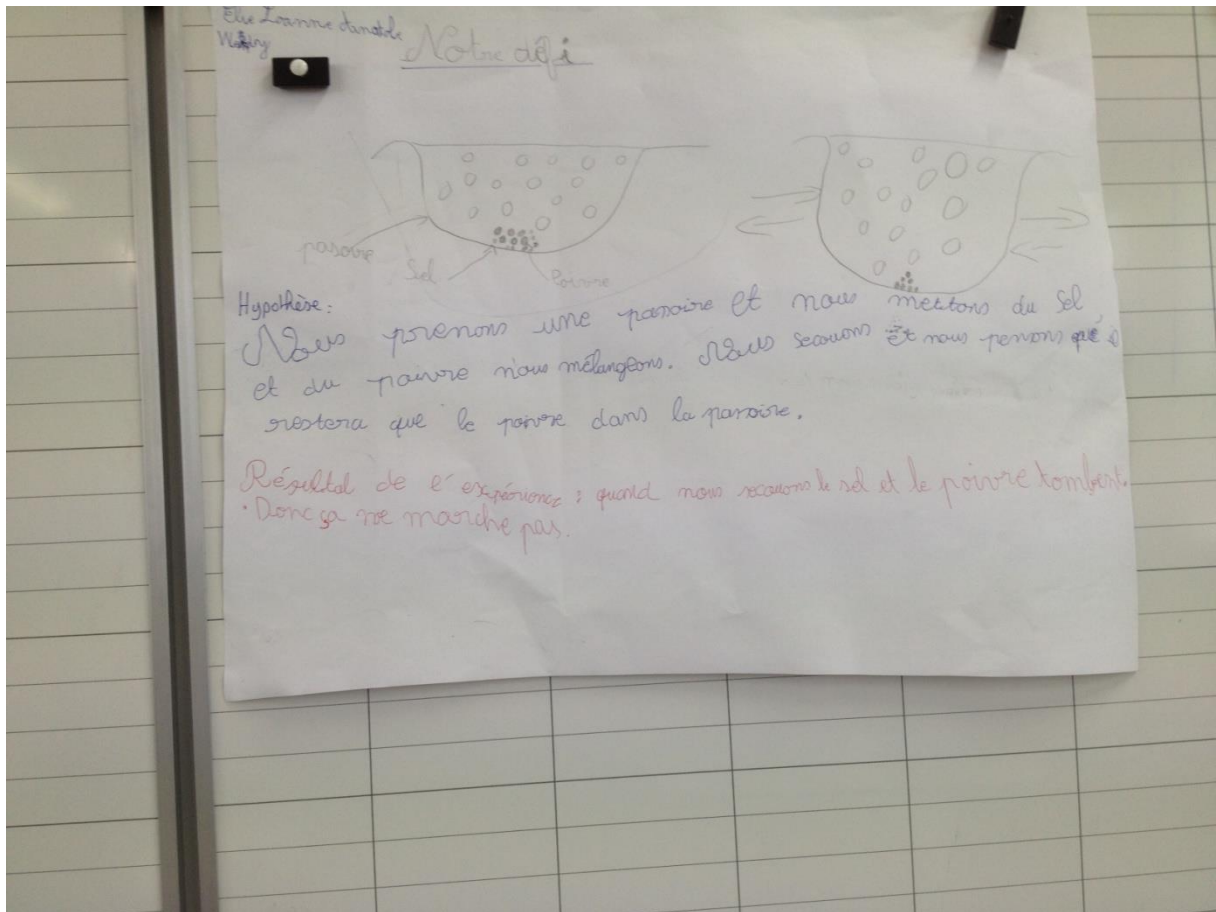 Elie Ioanne Anatole
Notre défi
pasoire
Sel
Poivre
Hypothèse:
Nous prenons une passoire et nous mettons du Sel
et du poivre nous mélangeons. Nous secouons Et nous pensons que
restera que le poivre dans la passoire.
Résultat de l'expérience : quand nous secouons le sel et le poivre tombent.
. Donc ça ne marche pas.